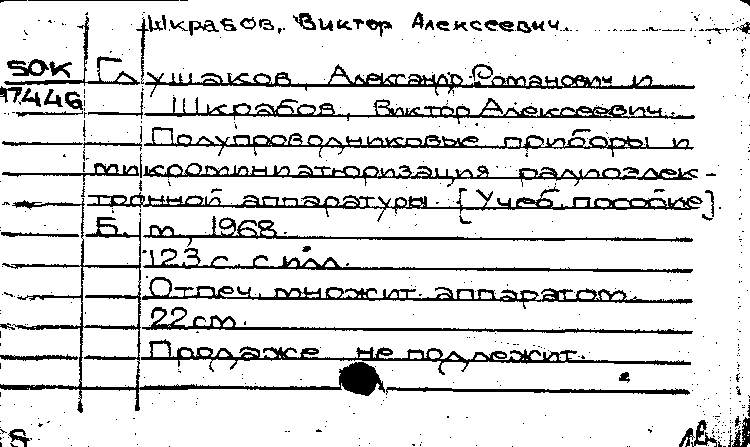 Шкрабов, Виктор Алексеевич
50К Глушаков, Александр Романович и
17446 Шкрабов, Виктор Алексеевич.
Полупроводниковые приборы и
микроминиатюризация радиоэлек-
тронной аппаратуры. [Учеб. пособие].
Б. м., 1968.
123 с. с илл.
Отпеч. множит. аппаратом.
22 см.
Продаже не подлежит.